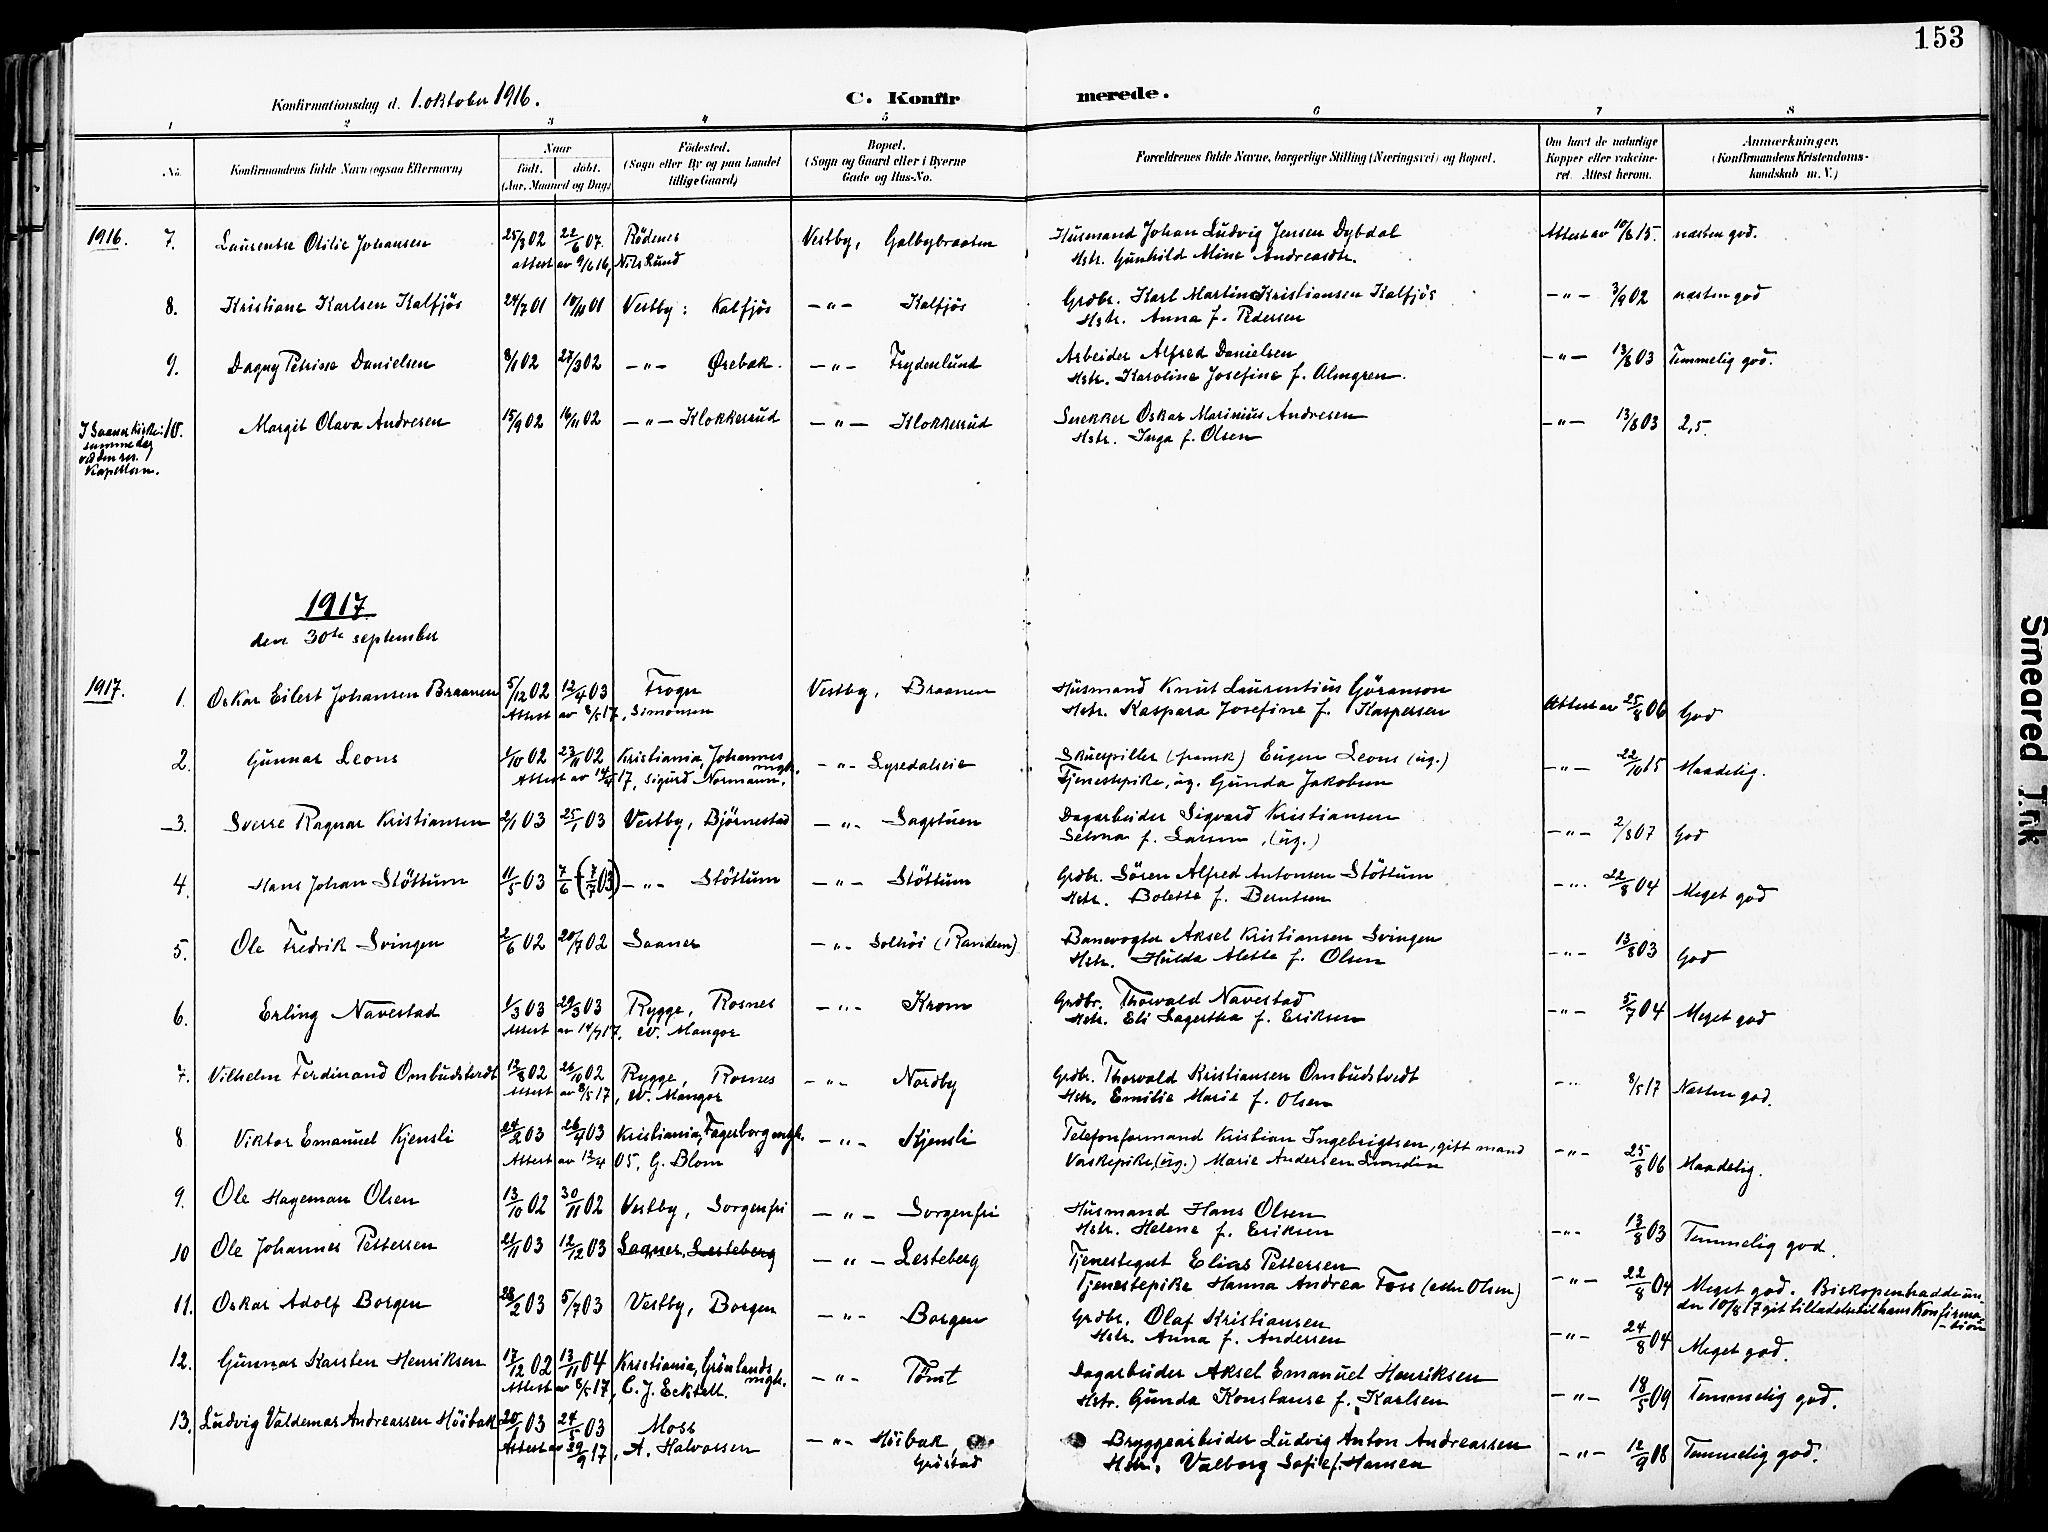 153
Konfirmationsdag d. 1. oktober 1916.
C. Konfirmerede.
1 2 3 4 5 6 7 8
No. Konfirmandens fulde Navn (ogsaa Efternavn) Naar født. døbt. (Aar, Maaned og Dag) Fødested. (Sogn eller By og paa Landet tillige Gaard) Bopæl. (Sogn og Gaard eller i Byerne Gade og Hus-No. Forældrenes fulde Navne, borgerlige Stilling (Næringsvei) og Bopæl. Om havt de naturlige Kopper eller vakcineret. Attest herom. Anmærkninger. (Konfirmandens Kristendomskundskab m. V.)
1916. 7. Laurentse Otilie Johansen 25/3 02 22/6 07. Rödenes Vestby, Galbybraaten Husmand Johan Ludvig Jensen Dybdal Attest av 10/6 15. næsten god.
attest av 9/6 16, Nils Rund Hstr. Gunhild Mine Andreasdtr.
8. Kristiane Karlsen Kalfjös 24/7 01 10/11 01 Vestby: Kalfjös —"— Kalfjös Grdbr. Karl Martin Kristiansen Kalfjös —"— 3/9 02 næsten god
Hstr. Anna f. Pedersen
9. Dagny Petrine Danielsen 8/1 02 27/3 02 —"— Ørebæk. —"— Frydenlund Arbeider Alfred Danielsen —"— 13/8 03 Temmelig god.
Hstr. Karoline Josefine f. Almgren.
I Saaner Kirke: 10. Margit Olava Andresen 15/9 02 16/11 02 —"— Klokkerud —"— Klokkerud Snekker Oskar Marinius Andresen —"— 13/8 03 2,5.
samme dag Hstr. Inga f. Olsen
ved den res.
Kapellan.
1917
den 30te september
1917. 1. Oskar Eilert Johansen Braanen 5/12 02 12/4 03 Frogn Vestby, Braanen Husmand Knut Laurentius Göranson Attest av 25/8 06 God
Attest av 8/5 17, Simonsen Hstr. Kaspara Josefine f. Kaspersen
2. Gunnar Leons 1/10 02 23/11 02 Kristiania, Johannes mgk. —"— Lysedalseie Skuespiller (fransk) Eugen Leons (ug.) —"— 22/10 15 Maadelig.
Attest av 14/4 17, Sigurd Normann. Tjenestepike, ug. Gunda Jakobsen
3. Sverre Ragnar Kristiansen 2/1 03 25/1 03 Vestby, Björnestad —"— Sagstuen Dagarbeider Sigvard Kristiansen —"— 2/8 07 God
Selma f. Larsen, (ug.)
4. Hans Johan Stöttum 11/5 03 7/6 (7/7 03) —"— Stöttum —"— Stöttum Grdbr. Sören Alfred Antonsen Stöttum —"— 22/8 04 Meget god
Hstr. Bolette f. Berntsen
5. Ole Fredrik Svingen 2/6 02 20/7 02 Saaner —"— Solhöi (Randem) Banevogter Aksel Kristiansen Svingen —"— 13/8 03 God
Hstr. Hulda Alette f. Olsen
6. Erling Navestad 1/3 03 29/3 03 Rygge, Rosnes —"— Krom Grdbr. Thorvald Navestad —"— 5/7 04 Meget god
Attest av 14/4 17. W. Mangor Hstr. Eli Sagertha f. Eriksen
7. Vilhelm Ferdinand Ombudstvedt 12/8 02 26/10 02 Rygge, Rosnes —"— Nordby Grdbr. Thorvald Kristiansen Ombudstvedt —"— 8/5 17 Næsten god.
Attest av 8/5 17, W. Mangor Hstr. Emilie Marie f. Olsen
8 Viktor Emanuel Kjensli 24/2 03 26/4 03 Kristiania, Fagerborg mgk. —"— Kjensli Telefonformand Kristian Ingebrigtsen, gift mand —"— 25/8 06 Maadelig.
Attest av 12/4 05, G. Blom Vaskepike, (ug.) Marie Andersen Lundin
9. Ole Hageman Olsen 13/10 02 30/11 02 Vestby, Sorgenfri —"— Sorgenfri Husmand Hans Olsen —"— 13/8 03 Temmelig god.
Hstr. Helene f. Eriksen
10 Ole Johannes Pettersen 21/11 03 12/12 03 Saaner, Lesteberg —"— Lesteberg Tjenestegut Elias Pettersen —"— 22/8 04 Meget god. Biskopen hadde un-
Tjenestepike Hanna Andrea Foss (eller Olsen) der 10/8 17 git tilladelse til hans Konfirma-
tion
11. Oskar Adolf Borgen 28/2 03 5/7 03 Vestby, Borgen —"— Borgen Grdbr. Olaf Kristiansen —"— 24/8 04 Meget god.
Hstr. Anna f. Andersen
12. Gunnar Karsten Henriksen 17/12 02 13/11 04 Kristiania, Grönlands mgk. —"— Tömt Dagarbeider Aksel Emanuel Henriksen —"— 18/5 09 Temmelig god.
Attest av 8/5 17, C. J. Eckhell. Hstr. Gunda Konstanse f. Karlsen
13. Ludvig Valdemar Andreassen Höibak 20/1 03 24/5 03 Moss —"— Höibak, Bryggearbeider Ludvig Anton Andreassen —"— 12/9 08 Temmelig god.
Attest av 29/9 17, A. Halvorsen Gröstad Hstr. Valborg Sofie f. Hansen
Smeared Ink